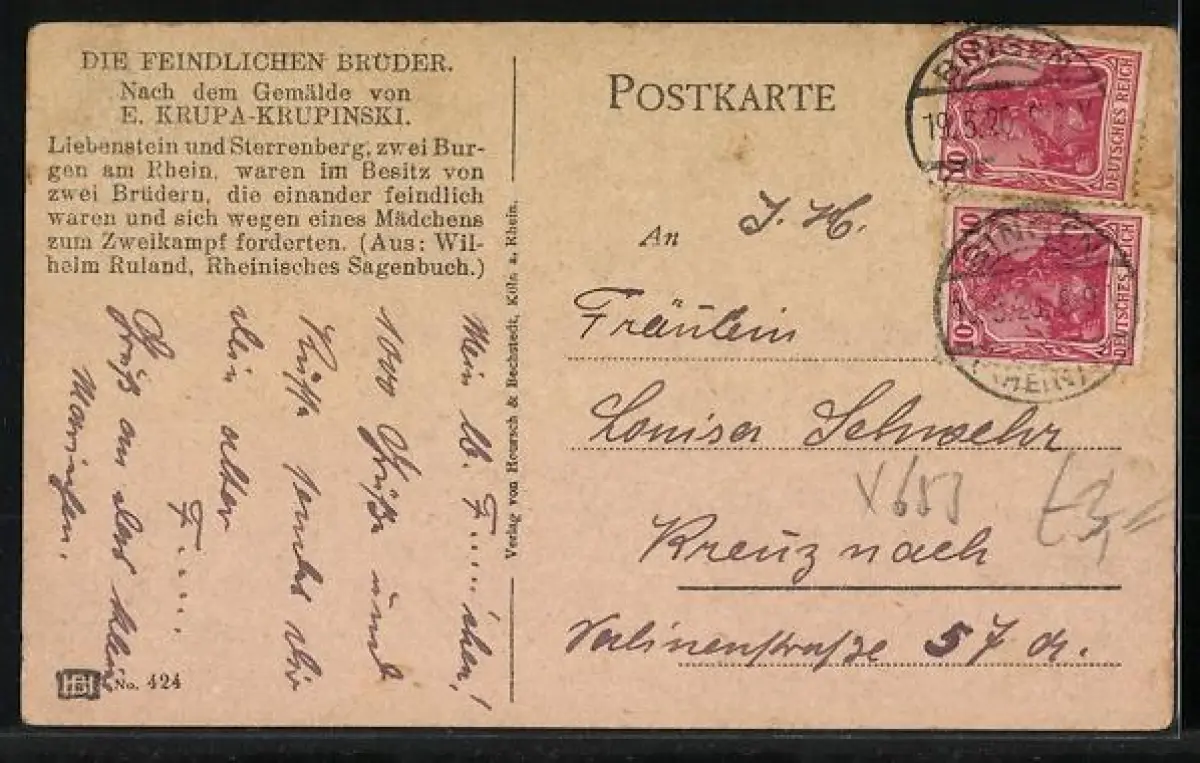 DIE FEINDLICHEN BRÜDER.
Nach dem Gemälde von
E. KRUPA-KRUPINSKI.
Liebenstein und Sterrenberg, zwei Bur-
gen am Rhein, waren im Besitz von
zwei Brüdern, die einander feindlich
waren und sich wegen eines Mädchens
zum Zweikampf forderten. (Aus: Wil-
helm Ruland, Rheinisches Sagenbuch.)
Mein lb. F.....chen!
1000 Grüße und
Küsse sendet Dir
dein alter
F....
Gruß an das kleine
No. 424
Verlag von Hoursch & Bechstedt, Köln a. Rhein.
POSTKARTE
An
J. H.
Fräulein
Louisa Schwehr
Kreuznach
Salinenstraße 57 a.
BINGEN
10
DEUTSCHES REICH
10
BINGEN
10
DEUTSCHES REICH
10
(RHEIN)